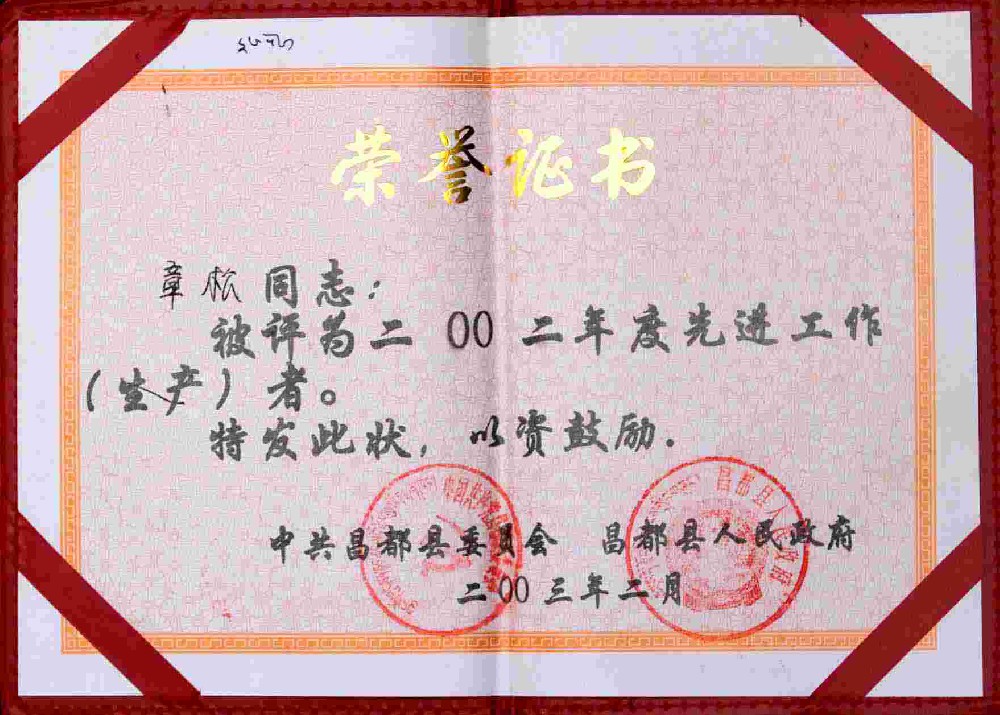 荣誉证书
章松同志：
被评为二00二年度先进工作
（生产）者。
特发此状，以资鼓励.
中共昌都县委员会 昌都县人民政府
二00三年二月